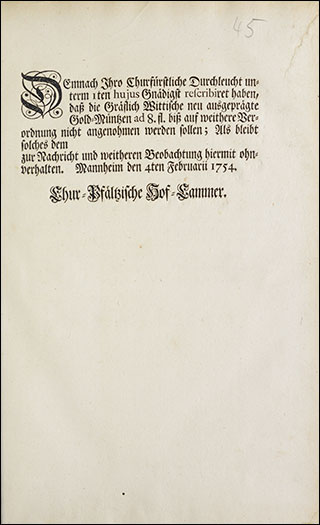 45
DEmnach Ihro Churfürstliche Durchleucht un-
term 1ten hujus Gnädigst rescribiret haben,
daß die Gräflich Wittische neu ausgeprägte
Gold-Müntzen ad 8. fl. biß auf weithere Ver-
ordnung nicht angenohmen werden sollen; Als bleibt
solches dem
zur Nachricht und weitheren Beobachtung hiermit ohn-
verhalten. Mannheim den 4ten Februarii 1754.
Chur-Pfältzische Hof-Cammer.